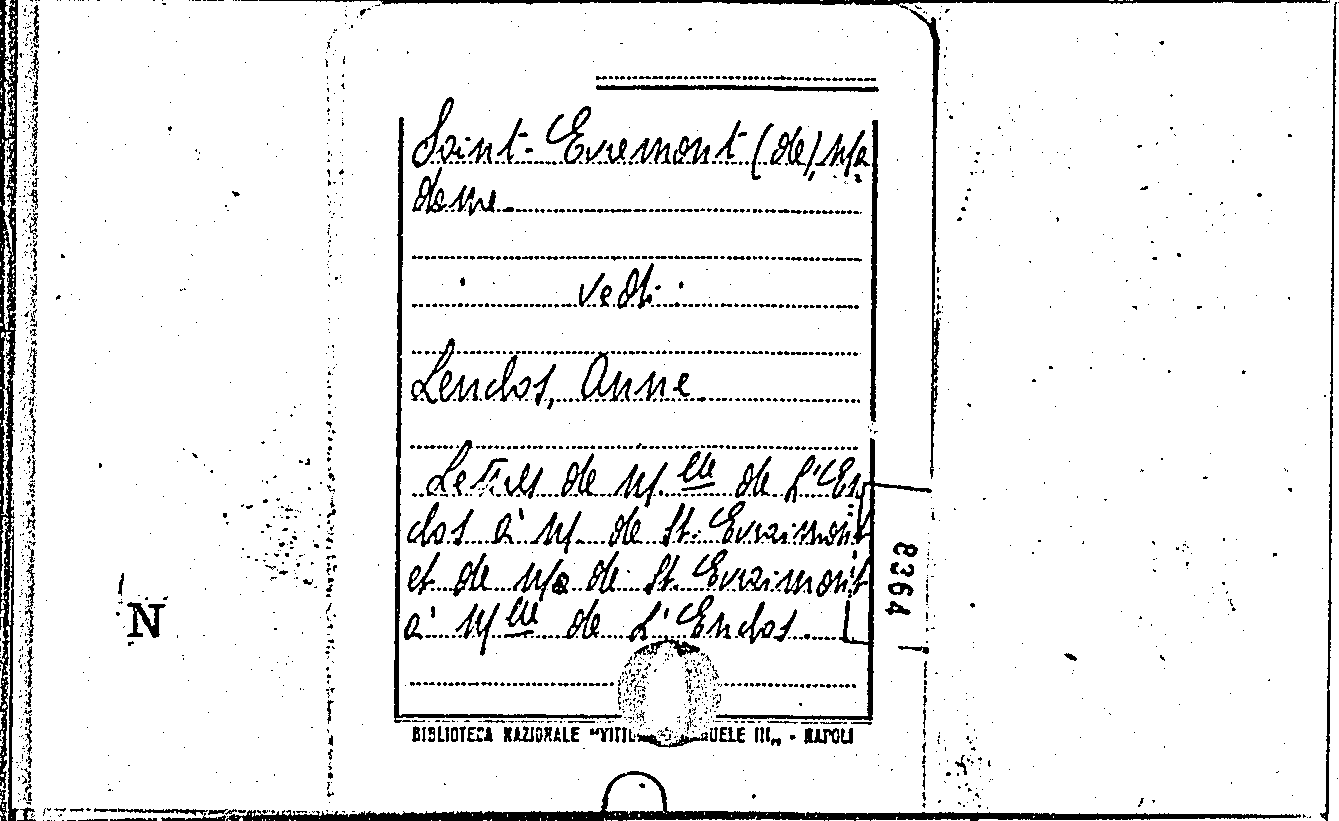 Saint-Evremont (de), Ma
dame.
vedi
Lenclos, Anne.
Lettres de M.lle de L'En
clos à M. de St. Evraimont
et de Ma de St. Evraimont
à M.lle de L'Enclos.
8364
N
BIBLIOTECA NAZIONALE "VITT UELE III„ - NAPOLI